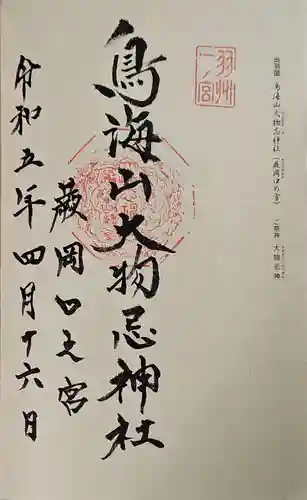 出羽國 鳥海山大物忌神社(蕨岡口の宮) ご祭神 大物忌神
羽州
一ノ宮
鳥海山大物忌神社
蕨岡口之宮
令和五年四月十六日